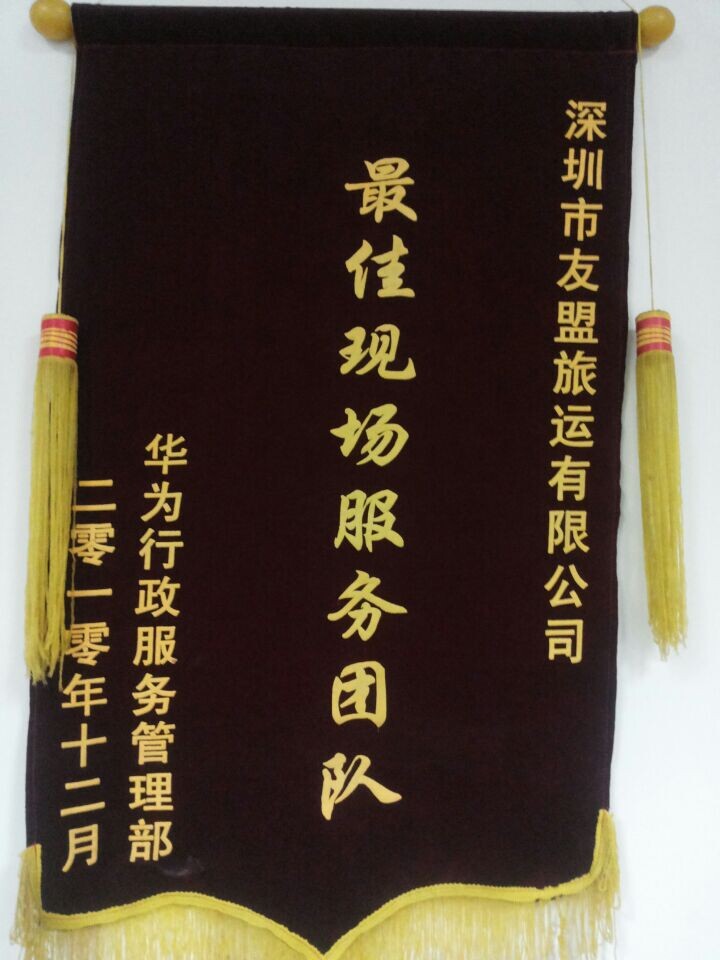 深圳市友盟旅运有限公司
最佳现场服务团队
华为行政服务管理部
二零一零年十二月